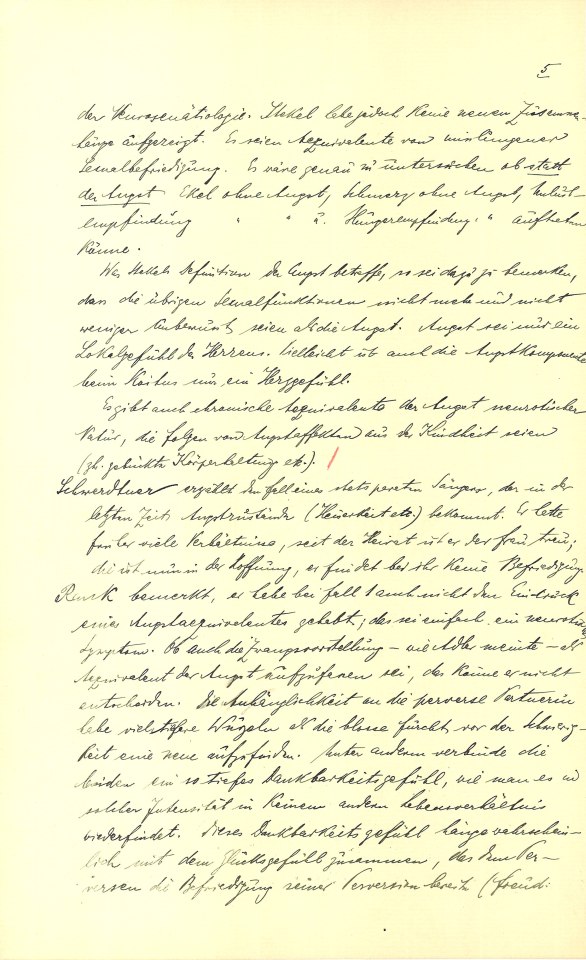 5
der Neurosenätiologie. Stekel habe jedoch keine neuen Zusammen-
hänge aufgezeigt. Es seien Aequivalente von misslungener
Sexualbefriedigung. Es wäre genau zu untersuchen ob statt
der Angst Ekel ohne Angst, Schmerz ohne Angst, Unlust-
empfindung " " u. Hungerempfindung " auftreten
könne.
Was Stekels Definition der Angst betreffe, so sei dazu zu bemerken,
dass die übrigen Sexualfunktionen nicht mehr und nicht
weniger unbewusst seien als die Angst. Angst sei nur ein
Lokalgefühl des Herzens. Vielleicht ist auch die Angstkomponente
beim Koitus nur ein Herzgefühl.
Es gibt auch chronische Aequivalente der Angst neurotischer
Natur, die Folgen von Angstaffekten aus der Kindheit seien
(zb. gebückte Körperhaltung etc.).
Schwerdtner erzählt den Fall eines stets potenten Sängers, der in der
letzten Zeit Angstzustände (Heiserkeit etc.) bekommt. Er hatte
früher viele Verhältnisse, seit der Heirat ist er der Frau treu;
die ist nun in der Hoffnung, er findet bei ihr keine Befriedigung.
Rank bemerkt, er habe bei Fall 1 auch nicht den Eindruck
eines Angstaequivalentes gehabt; das sei einfach ein neurotisches
Symptom. Ob auch die Zwangsvorstellung – wie Adler meinte – als
Aequivalent der Angst aufzufassen sei, das könne er nicht
entscheiden. Die Anhänglichkeit an die perverse Partnerin
habe viel tiefere Wurzeln als die blosse Furcht vor der Schwierig-
keit eine neue aufzufinden. Unter anderem verbinde die
beiden ein so tiefes Dankbarkeitsgefühl, wie man es in
solcher Intensität in keinem andern Lebensverhältnis
wiederfindet. Dieses Dankbarkeitsgefühl hänge wahrschein-
lich mit dem Glücksgefühl zusammen, das dem Per-
versen die Befriedigung seiner Perversion bereite (Freud: